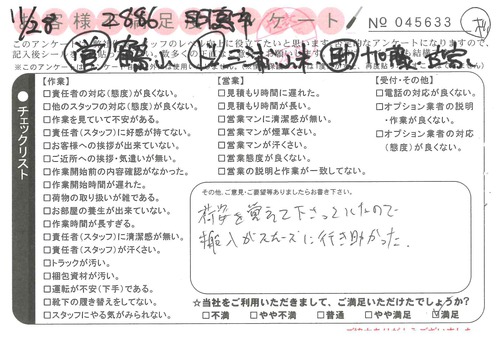 11/28 2886
お客様満足度アンケート
No 045633
このアンケートは
【作業】
□責任者の対応(態度)が良くない。
□他のスタッフの対応(態度)が良くない。
□作業を見ていて不安がある。
□責任者(スタッフ)に好感が持てない。
□お客様への挨拶が出来ていない。
□ご近所への挨拶・気遣いが無い。
□作業開始前の内容確認がなかった。
□作業開始時間が遅れた。
□荷物の取り扱いが雑である。
□お部屋の養生が出来ていない。
□作業時間が長すぎる。
□責任者(スタッフ)に清潔感が無い。
□責任者(スタッフ)が汗くさい。
□トラックが汚い。
□梱包資材が汚い。
□運転が不安(下手)である。
□靴下の履き替えをしてない。
□スタッフにやる気がみられない。
チェックリスト
【営業】
□見積もり時間に遅れた。
□見積もり時間が長い。
□営業マンに清潔感が無い。
□営業マンが煙草くさい。
□営業マンが汗くさい。
□営業態度が良くない。
□営業の説明と作業が一致してない。
【受付・その他】
□電話の対応が良くない。
□オプション業者の説明
・作業が良くない。
□オプション業者の対応
(態度)が良くない。
その他、ご意見・ご要望等ありましたらお書き下さい。
荷姿を覚えて下さってたので
搬入がスムーズに行き助かった。
☆当社をご利用いただきまして、ご満足いただけたでしょうか?
□不満 □やや不満 □普通 □やや満足 ☑満足